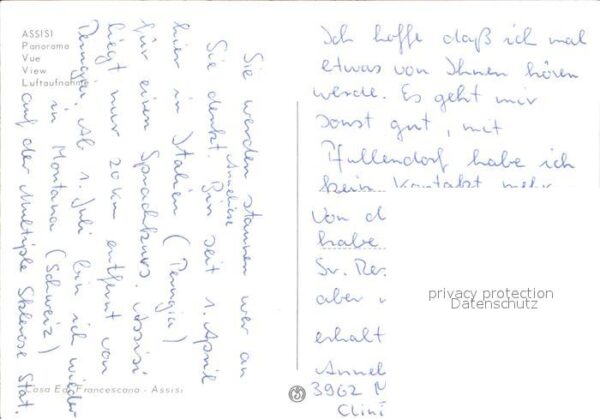 ASSISI
Panorama
Vue
View
Luftaufnahme
Sie werden staunen wer an
Sie denkt. Bin seit 1. April
Anneliese
hier in Italien (Perugia)
für einen Sprachkurs. Assisi
liegt nur 20 km entfernt von
Perugia. Ab 1. Juli bin ich wieder
in Montana (Schweiz)
auf der Multiple Sklerose Stat.
Ich hoffe daß ich mal
etwas von Ihnen hören
werde. Es geht mir
sonst gut, mit
Pfullendorf habe ich
kein Kontakt mehr
Von d
habe
Sr.
aber
erhalt
Annel
3962 M
Clini
privacy protection
Datenschutz
Casa Ed. Francescana - Assisi